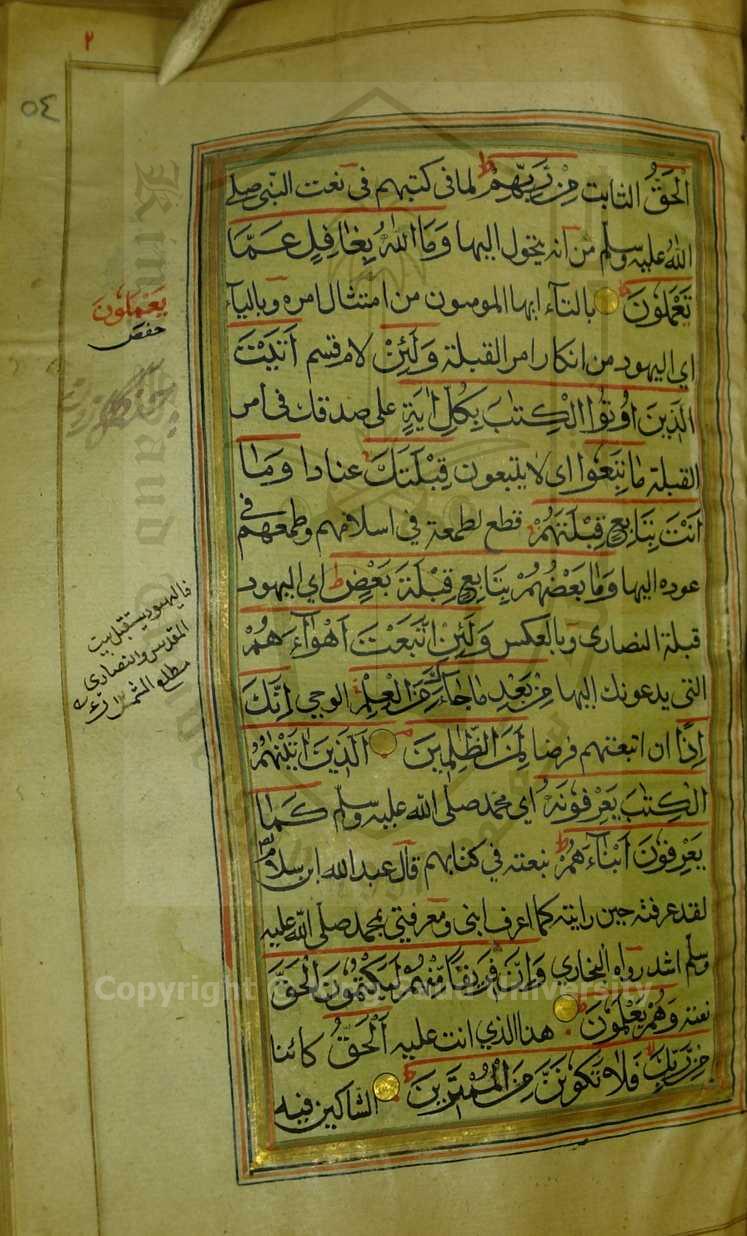 ٢
٥٤
الْحَقُّ الثابت مِنْ رَبِّهِمْ ط لما في كتبهم في نعت النبي صلى
الله عليه وسلم من انه يتحول اليها وَمَا اللّٰهُ بِغَافِلٍ عَمَّا
تَعْمَلُونَ ط بالتآء ايها المومنون من امتثال امره وباليآء
اي اليهود من انكار امر القبلة وَلَئِنْ لام قسم اَتَيْتَ
الَّذِينَ اُوتُوا الْكِتٰبَ بِكُلِّ اٰيَةٍ على صدقك في امر
القبلة مَا تَبِعُوا اى لا يتبعون قِبْلَتَكَ عنادا وَمَا
اَنْتَ بِتَابِعٍ قِبْلَتَهُمْ قطع لطمعة في اسلامهم وطمعهم في
عوده اليها وَمَا بَعْضُهُمْ بِتَابِعٍ قِبْلَةَ بَعْضٍ ط اي اليهود
قبلة النصارى وبالعكس وَلَئِنْ اتَّبَعْتَ اَهْوَآءَهُمْ
التي يدعونك اليها مِنْ بَعْدِ مَا جَآءَكَ مِنَ الْعِلْمِ الوحي اِنَّكَ
اِذًا ان اتبعتهم فرضا لَمِنَ الظّٰلِمِينَ اَلَّذِينَ اٰتَيْنٰهُمُ
الْكِتٰبَ يَعْرِفُونَهُ اي محمد صلى الله عليه وسلم كَمَا
يَعْرِفُونَ اَبْنَآءَهُمْ ط بنعته في كتابهم قال عبد الله ابن سلام
لقد عرفته حين رايته كما اعرف ابني ومعرفتي بمحمد صلى الله عليه
وسلم اشد رواه البخاري وَاِنَّ فَرِيقًا مِنْهُمْ لَيَكْتُمُونَ الْحَقَّ
نعته وَهُمْ يَعْلَمُونَ ط هذا الذي انت عليه اَلْحَقُّ كائنا
مِنْ رَبِّكَ فَلَا تَكُونَنَّ مِنَ الْمُمْتَرِينَ ط الشاكين فيه
يَعْمَلُونَ
حفص
فاليهود يستقبل بيت
المقدس والنصارى
مطلع الشمس
King Saud
Copyright © King Saud University